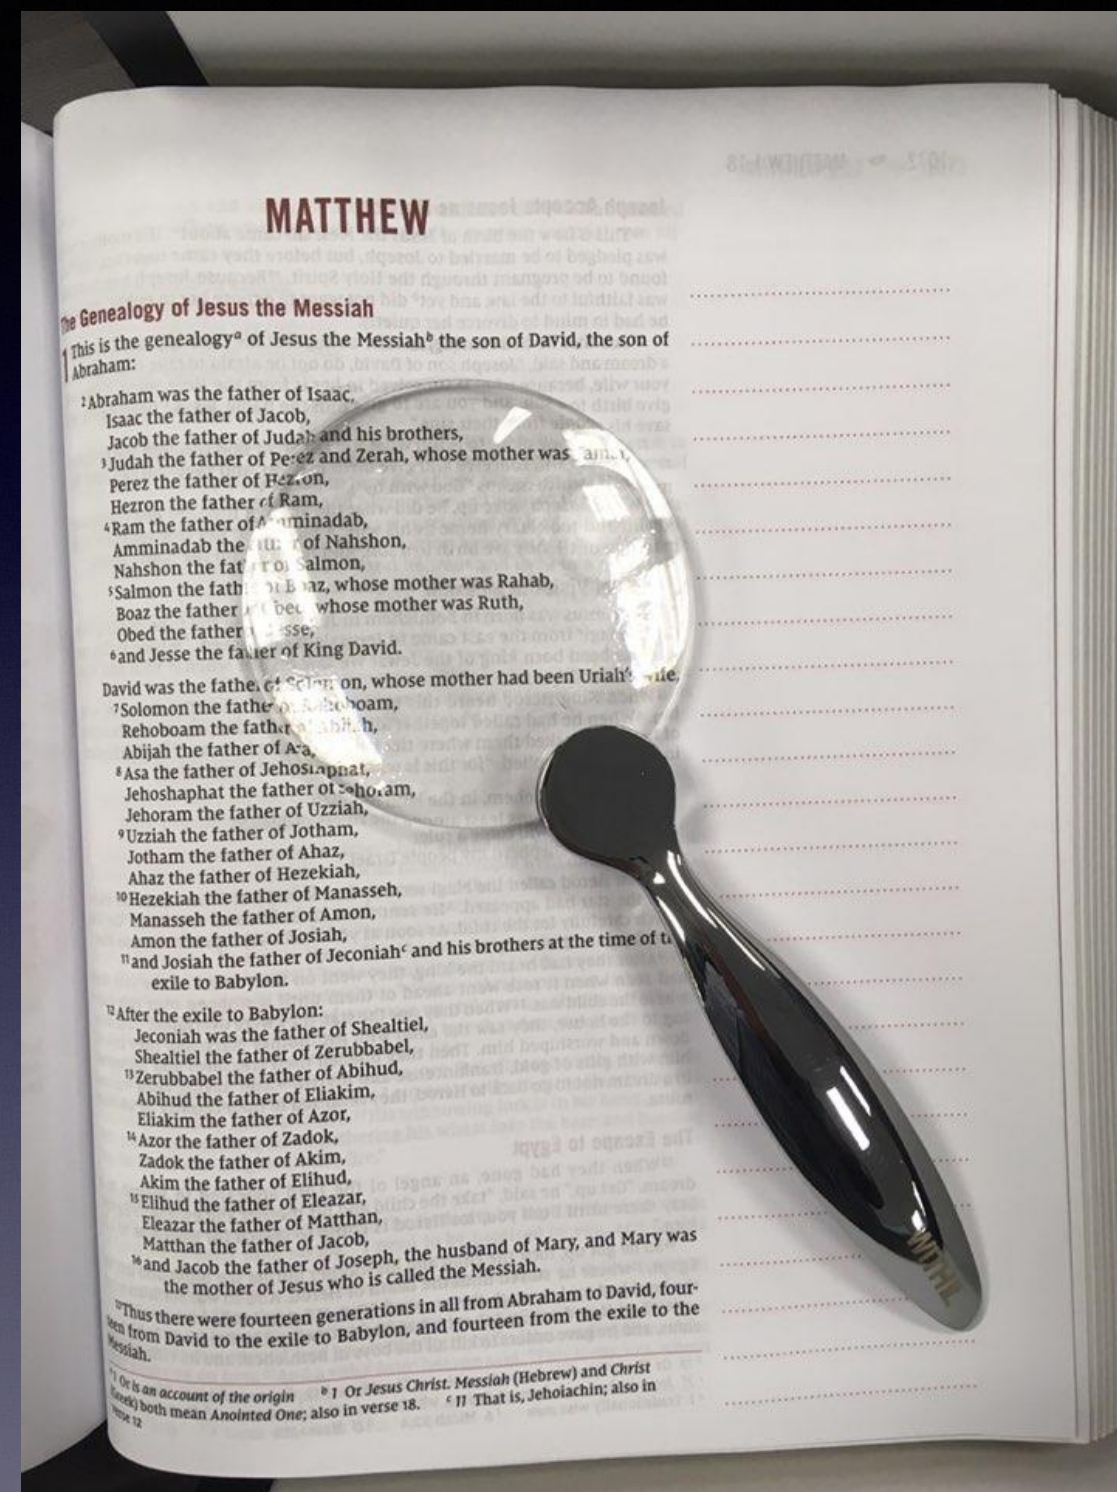 MATTHEW
The Genealogy of Jesus the Messiah
1 This is the genealogyᵃ of Jesus the Messiahᵇ the son of David, the son of
Abraham:
²Abraham was the father of Isaac,
Isaac the father of Jacob,
Jacob the father of Judah and his brothers,
³Judah the father of Perez and Zerah, whose mother was
Perez the father of Hezron,
Hezron the father of Ram,
⁴Ram the father of Amminadab,
Amminadab the of Nahshon,
Nahshon the father of Salmon,
⁵Salmon the father of Boaz, whose mother was Rahab,
Boaz the father whose mother was Ruth,
Obed the father
⁶and Jesse the father of King David.
David was the father of Solomon, whose mother had been Uriah's wife,
⁷Solomon the father of Rehoboam,
Rehoboam the father of Abijah,
Abijah the father of Asa,
⁸Asa the father of Jehoshaphat,
Jehoshaphat the father of Jehoram,
Jehoram the father of Uzziah,
⁹Uzziah the father of Jotham,
Jotham the father of Ahaz,
Ahaz the father of Hezekiah,
¹⁰Hezekiah the father of Manasseh,
Manasseh the father of Amon,
Amon the father of Josiah,
¹¹and Josiah the father of Jeconiahᶜ and his brothers at the time of
exile to Babylon.
¹²After the exile to Babylon:
Jeconiah was the father of Shealtiel,
Shealtiel the father of Zerubbabel,
¹³Zerubbabel the father of Abihud,
Abihud the father of Eliakim,
Eliakim the father of Azor,
¹⁴Azor the father of Zadok,
Zadok the father of Akim,
Akim the father of Elihud,
¹⁵Elihud the father of Eleazar,
Eleazar the father of Matthan,
Matthan the father of Jacob,
¹⁶and Jacob the father of Joseph, the husband of Mary, and Mary was
the mother of Jesus who is called the Messiah.
¹⁷Thus there were fourteen generations in all from Abraham to David, four-
teen from David to the exile to Babylon, and fourteen from the exile to the
Messiah.
ᵃ1 Or is an account of the origin ᵇ1 Or Jesus Christ. Messiah (Hebrew) and Christ
(Greek) both mean Anointed One; also in verse 18. ᶜ11 That is, Jehoiachin; also in
verse 12
WTHL